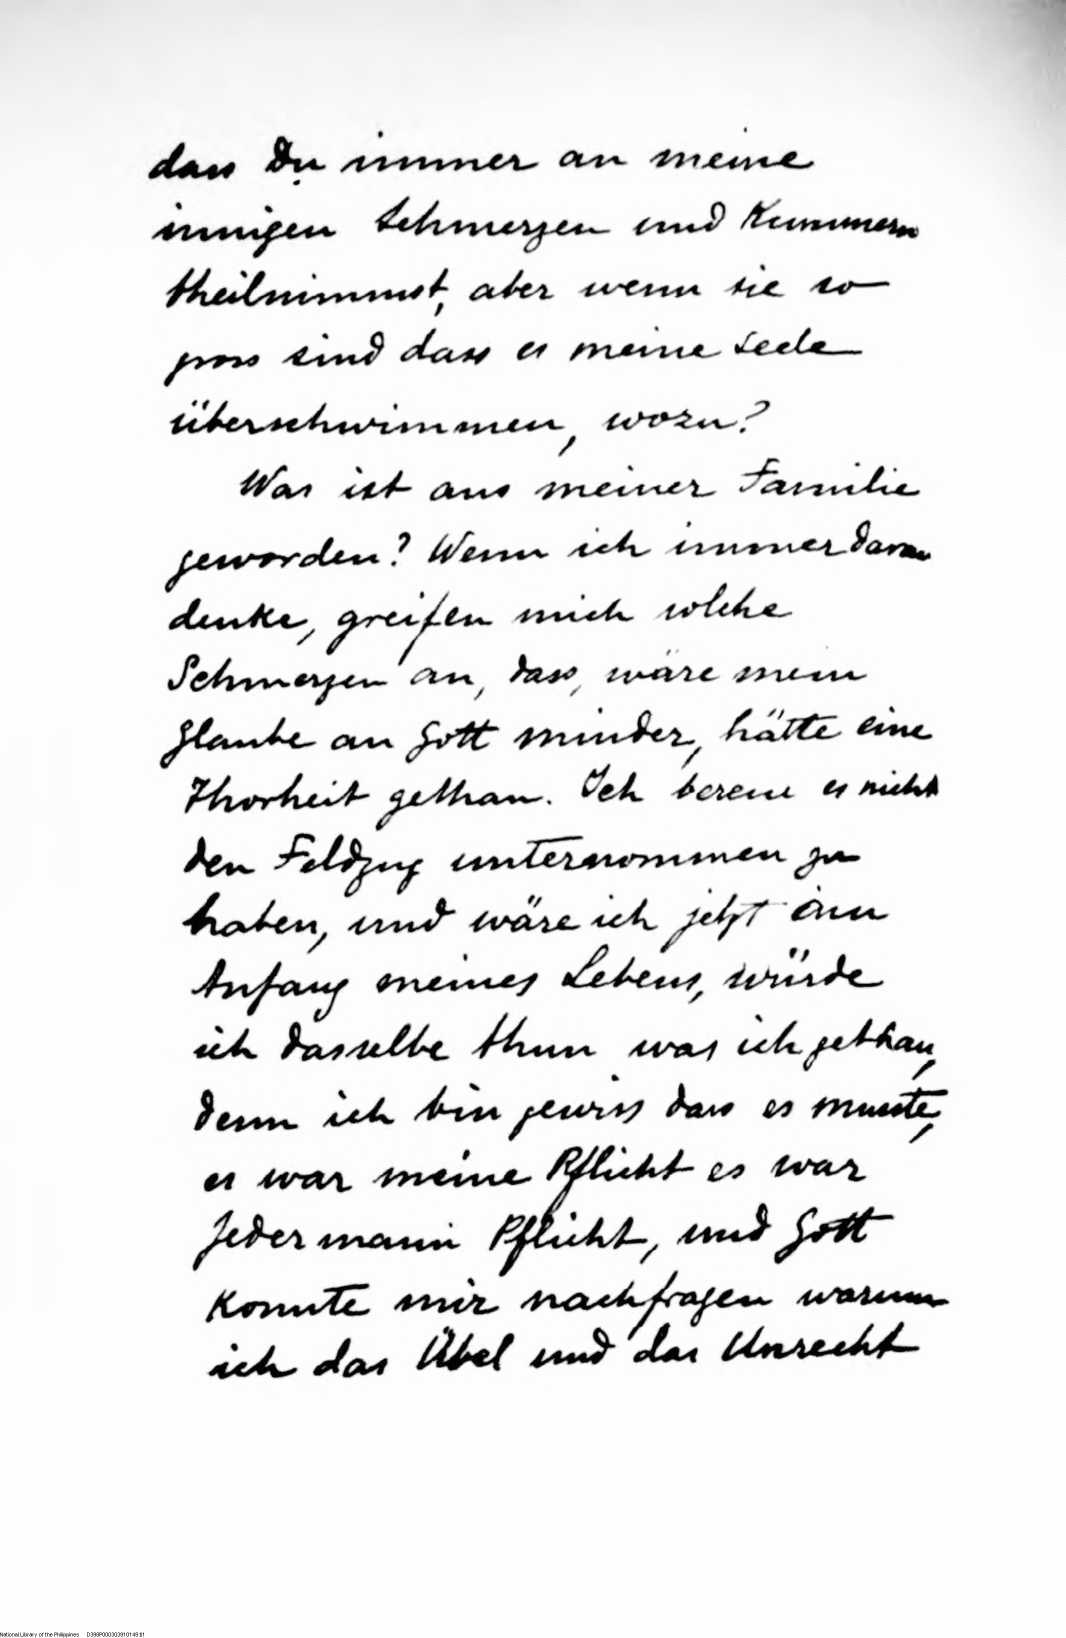 dass Du immer an meine
innigen Schmerzen und Kummern
theilnimmst, aber wenn sie so
gross sind dass es meine Seele
überschwimmen, wozu?
Was ist aus meiner Familie
geworden? Wenn ich immer daran
denke, greifen mich solche
Schmerzen an, dass, wäre mein
Glaube an Gott minder, hätte eine
Thorheit gethan. Ich bereue es nicht
den Feldzug unternommen zu
haben, und wäre ich jetzt am
Anfang meines Lebens, würde
ich dasselbe thun was ich gethan,
denn ich bin gewiss dass es musste,
es war meine Pflicht es war
Jedermann Pflicht, und Gott
konnte mir nachfragen warum
ich das Übel und das Unrecht
National Library of the Philippines